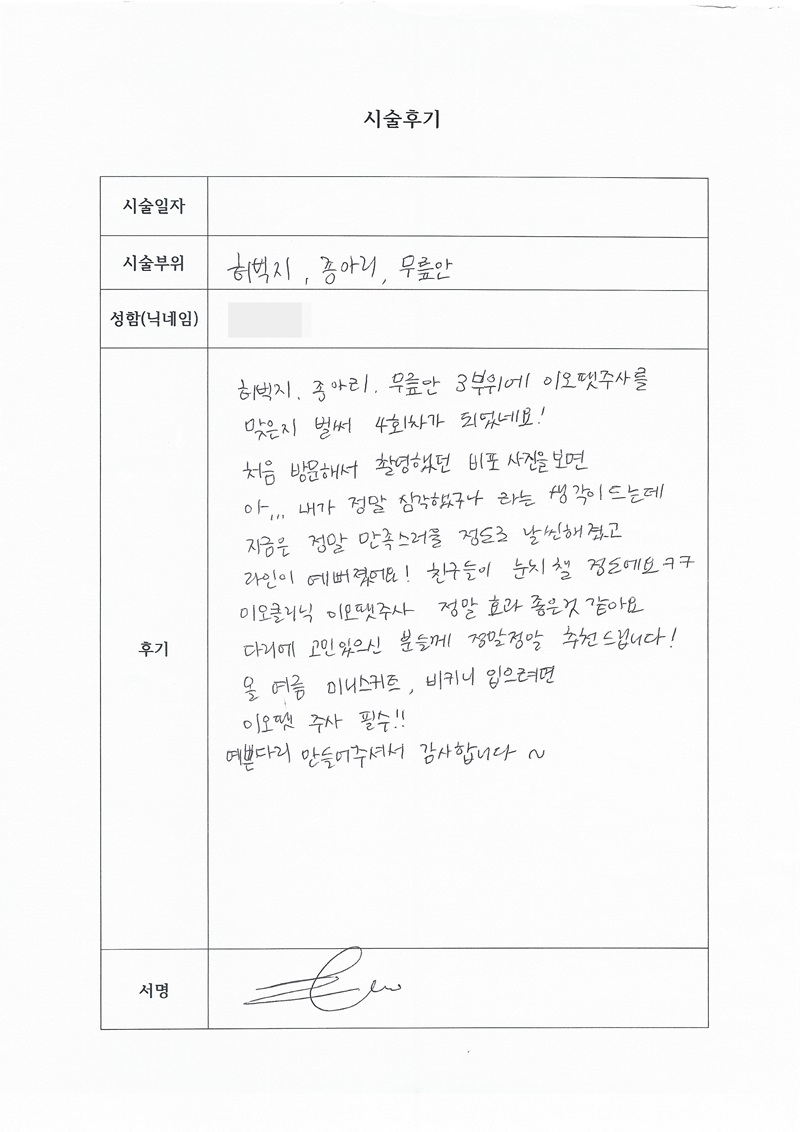 시술후기
시술일자
시술부위 허벅지, 종아리, 무릎안
성함(닉네임)
후기
허벅지. 종아리. 무릎안 3부위에 이오팻주사를
맞은지 벌써 4회차가 되었네요!
처음 방문해서 촬영했던 비포 사진을 보면
아,,, 내가 정말 심각했구나 라는 생각이 드는데
지금은 정말 만족스러울 정도로 날씬해졌고
라인이 예뻐졌어요! 친구들이 눈치 챌 정도에요ㅋㅋ
이오클리닉 이오팻주사 정말 효과 좋은것 같아요
다리에 고민있으신 분들께 정말정말 추천드립니다!
올 여름 미니스커트, 비키니 입으려면
이오팻 주사 필수!!
예쁜다리 만들어주셔서 감사합니다 ~
서명